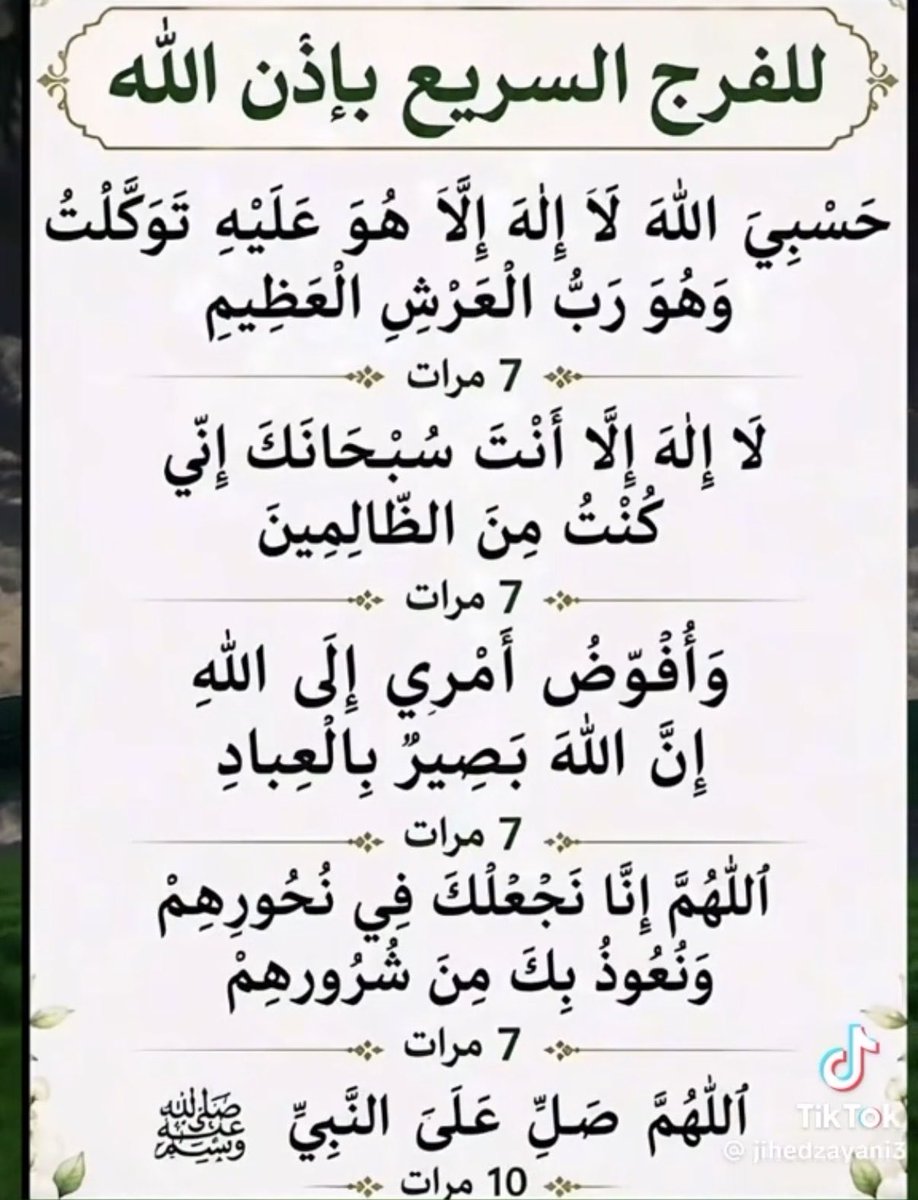 للفرج السريع بإذن الله
حَسْبِيَ اللهَ لَا إِلٰهَ إِلَّا هُوَ عَلَيْهِ تَوَكَّلْتُ
وَهُوَ رَبُّ الْعَرْشِ الْعَظِيمِ
7 مرات
لَا إِلٰهَ إِلَّا أَنْتَ سُبْحَانَكَ إِنّي
كُنْتُ مِنَ الظّالِمِينَ
7 مرات
وَأُفْوّضُ أَمْرِي إِلَى اللهِ
إِنَّ اللهَ بَصِيرٌ بِالْعِبادِ
7 مرات
ٱللّٰهُمَّ إِنَّا نَجْعَلْكَ فِي نُحُورِهِمْ
وَنُعُوذُ بِكَ مِنَ شُرُورهِمْ
7 مرات
ٱللّٰهُمَّ صَلِّ عَلَىَ النَّبِيِّ ﷺ
10 مرات
TikTok
@jihedzayani3